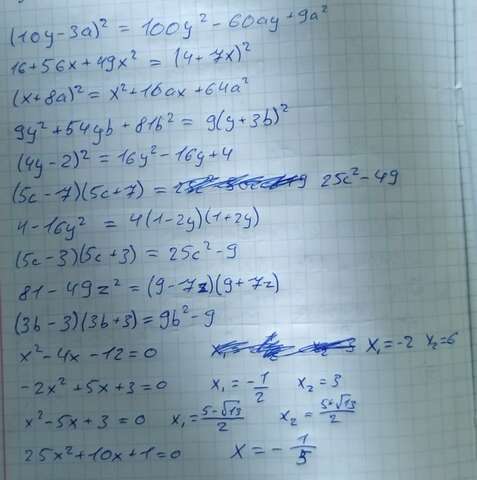 (10y-3a)² = 100y² - 60ay + 9a²
16+56x+49x² = (4+7x)²
(x+8a)² = x²+16ax+64a²
9y²+54yb+81b² = 9(y+3b)²
(4y-2)² = 16y²-16y+4
(5c-7)(5c+7) = 25c²-49
4-16y² = 4(1-2y)(1+2y)
(5c-3)(5c+3) = 25c²-9
81-49z² = (9-7z)(9+7z)
(3b-3)(3b+3) = 9b²-9
x²-4x-12=0 x₁=-2 x₂=6
-2x²+5x+3=0 x₁=-1/2 x₂=3
x²-5x+3=0 x₁=(5-√13)/2 x₂=(5+√13)/2
25x²+10x+1=0 x=-1/5